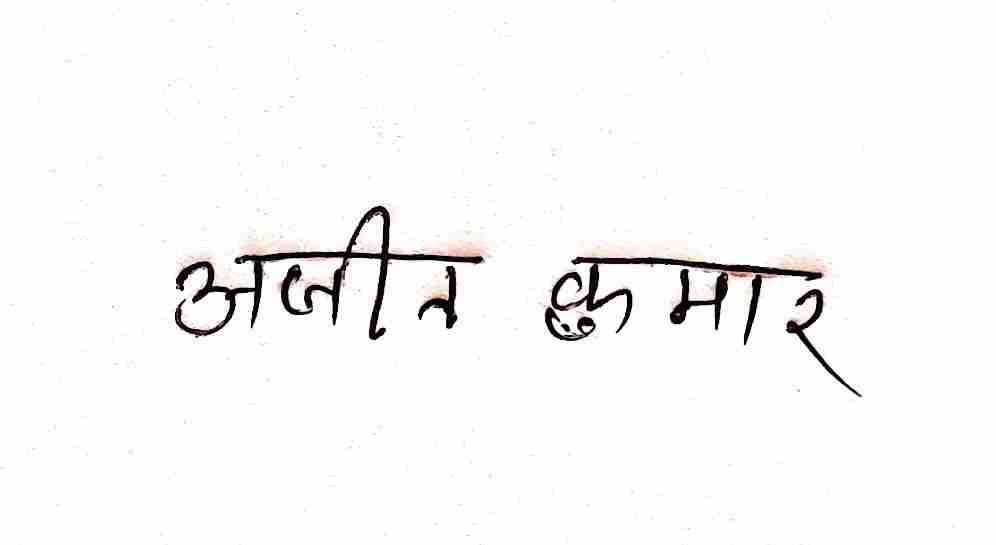 अजीत कुमार